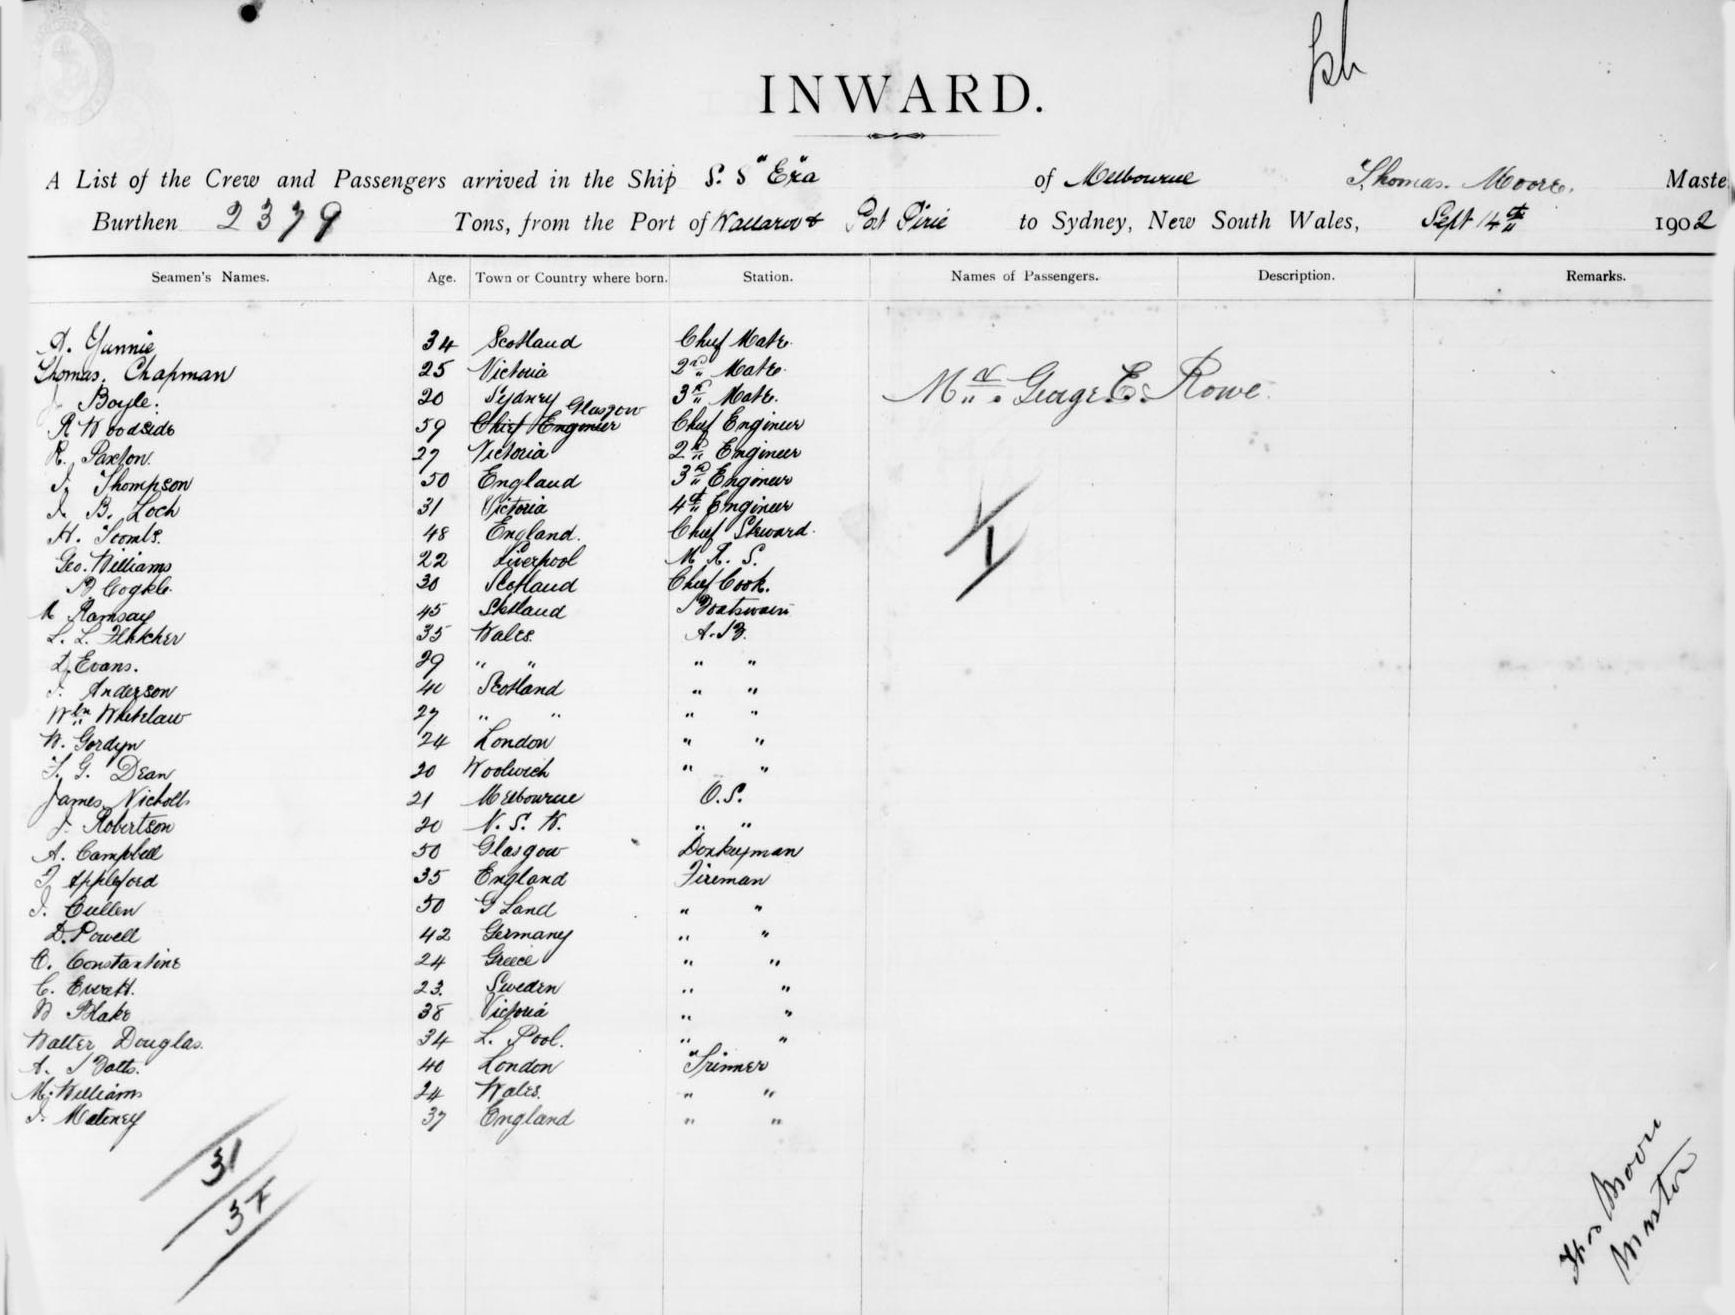 INWARD.
A List of the Crew and Passengers arrived in the Ship S. S "Era" of Melbourne Thomas. Moore. Maste
Burthen 2379 Tons, from the Port of Wallaroo & Port Pirie to Sydney, New South Wales, Sept 14th 1902
Seamen's Names. Age. Town or Country where born. Station. Names of Passengers. Description. Remarks.
A. Yunnie 34 Scotland Chief Mate.
Thomas. Chapman 25 Victoria 2nd Mate.
Boyle. 20 Sydney 3rd Mate. Mr. George. E. Rowe.
R Woodside 59 Chief Engineer Glasgow Chief Engineer
R. Paxton. 27 Victoria 2nd Engineer
J. Thompson 50 England 3rd Engineer
J. B. Loch 31 Victoria 4th Engineer
H. 48 England. Chief Steward.
Geo. Williams 22 Liverpool M. R. S.
30 Scotland Chief Cook.
Ramsay 45 Boatswain
L. L. Fletcher 35 Wales. A.B.
Evans. 29 " " " "
J. Anderson 40 Scotland " "
Wm Whitelaw 27 " " " "
W. Gordyn 24 London " "
G. Dean 20 Woolwich " "
James Nicholls 21 Melbourne O.S.
J. Robertson 20 N. S. W. " "
A. Campbell 50 Glasgow Donkeyman
Appleford 35 England Fireman
J. Cullen 50 " "
D. Powell 42 Germany " "
Constantine 24 Greece " "
C. Everett. 23. Sweden " "
Blake 38 Victoria " "
Walter Douglas. 34 L. Pool. " "
A. 40 London Trimmer
M. Williams 24 Wales. " "
J. 37 England " "
1
31
Thos Moore
Master